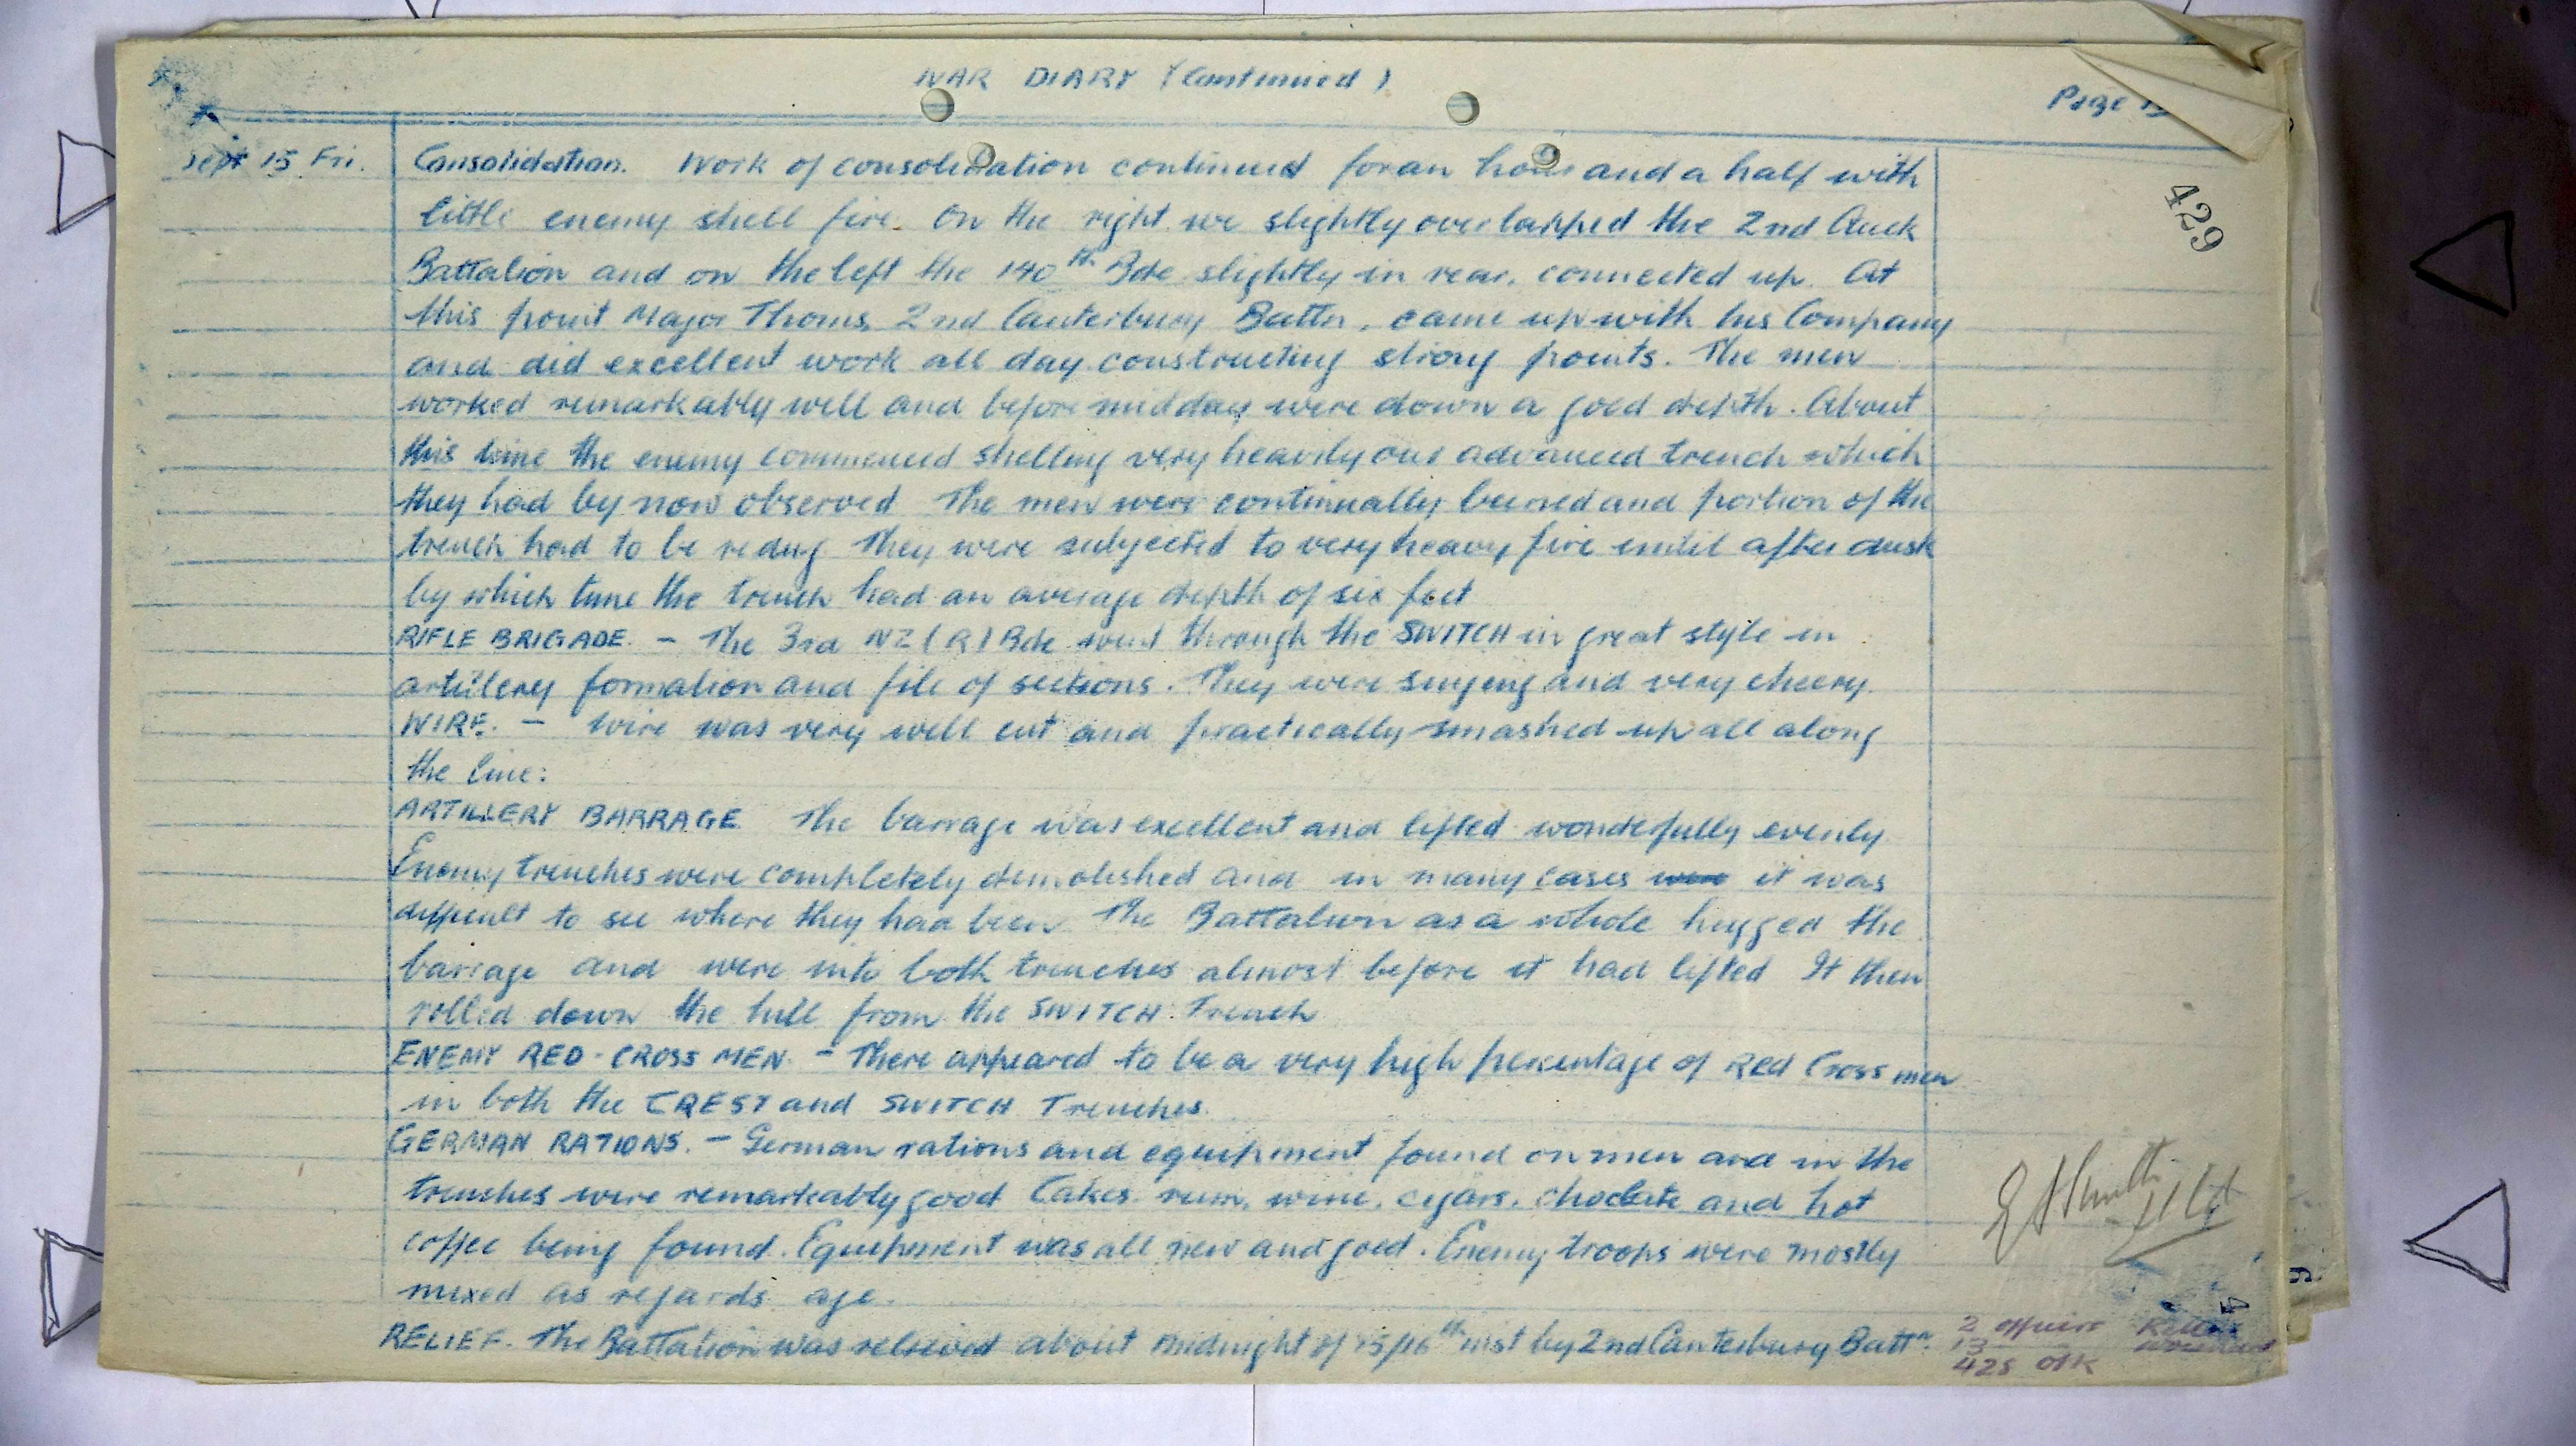 WAR DIARY (Continued)
Page
429
Sept 15 Fri.
Consolidation. Work of consolidation continued for an hour and a half with
little enemy shell fire. On the right we slightly overlapped the 2nd Auck
Battalion and on the left the 140th Bde slightly in rear, connected up. At
this point Major Thoms, 2nd Canterbury Battn, came up with his Company
and did excellent work all day constructing strong points. The men
worked remarkably well and before midday were down a good depth. About
this time the enemy commenced shelling very heavily our advanced trench which
they had by now observed The men were continually buried and portion of the
trench had to be redug They were subjected to very heavy fire until after dusk
by which time the trench had an average depth of six feet
RIFLE BRIGADE. - The 3rd NZ (R) Bde went through the SWITCH in great style in
artillery formation and file of sections. They were singing and very cheery.
WIRE. - Wire was very well cut and practically smashed up all along
the line:
ARTILLERY BARRAGE The barrage was excellent and lifted wonderfully evenly
Enemy trenches were completely demolished and in many cases were it was
difficult to see where they had been The Battalion as a whole hugged the
barrage and were into both trenches almost before it had lifted It then
rolled down the hill from the SWITCH Trench
ENEMY RED-CROSS MEN. - There appeared to be a very high percentage of Red Cross men
in both the CREST and SWITCH Trenches.
GERMAN RATIONS. - German rations and equipment found on men and in the
trenches were remarkably good Cakes. rum, wine, cigars, choclate and hot
coffee being found. Equipment was all new and good. Enemy troops were mostly
mixed as regards age.
RELIEF. The Battalion was relieved about midnight of 15/16th inst by 2nd Canterbury Battn.
2 officers Killed
13 wounded
425 O/R